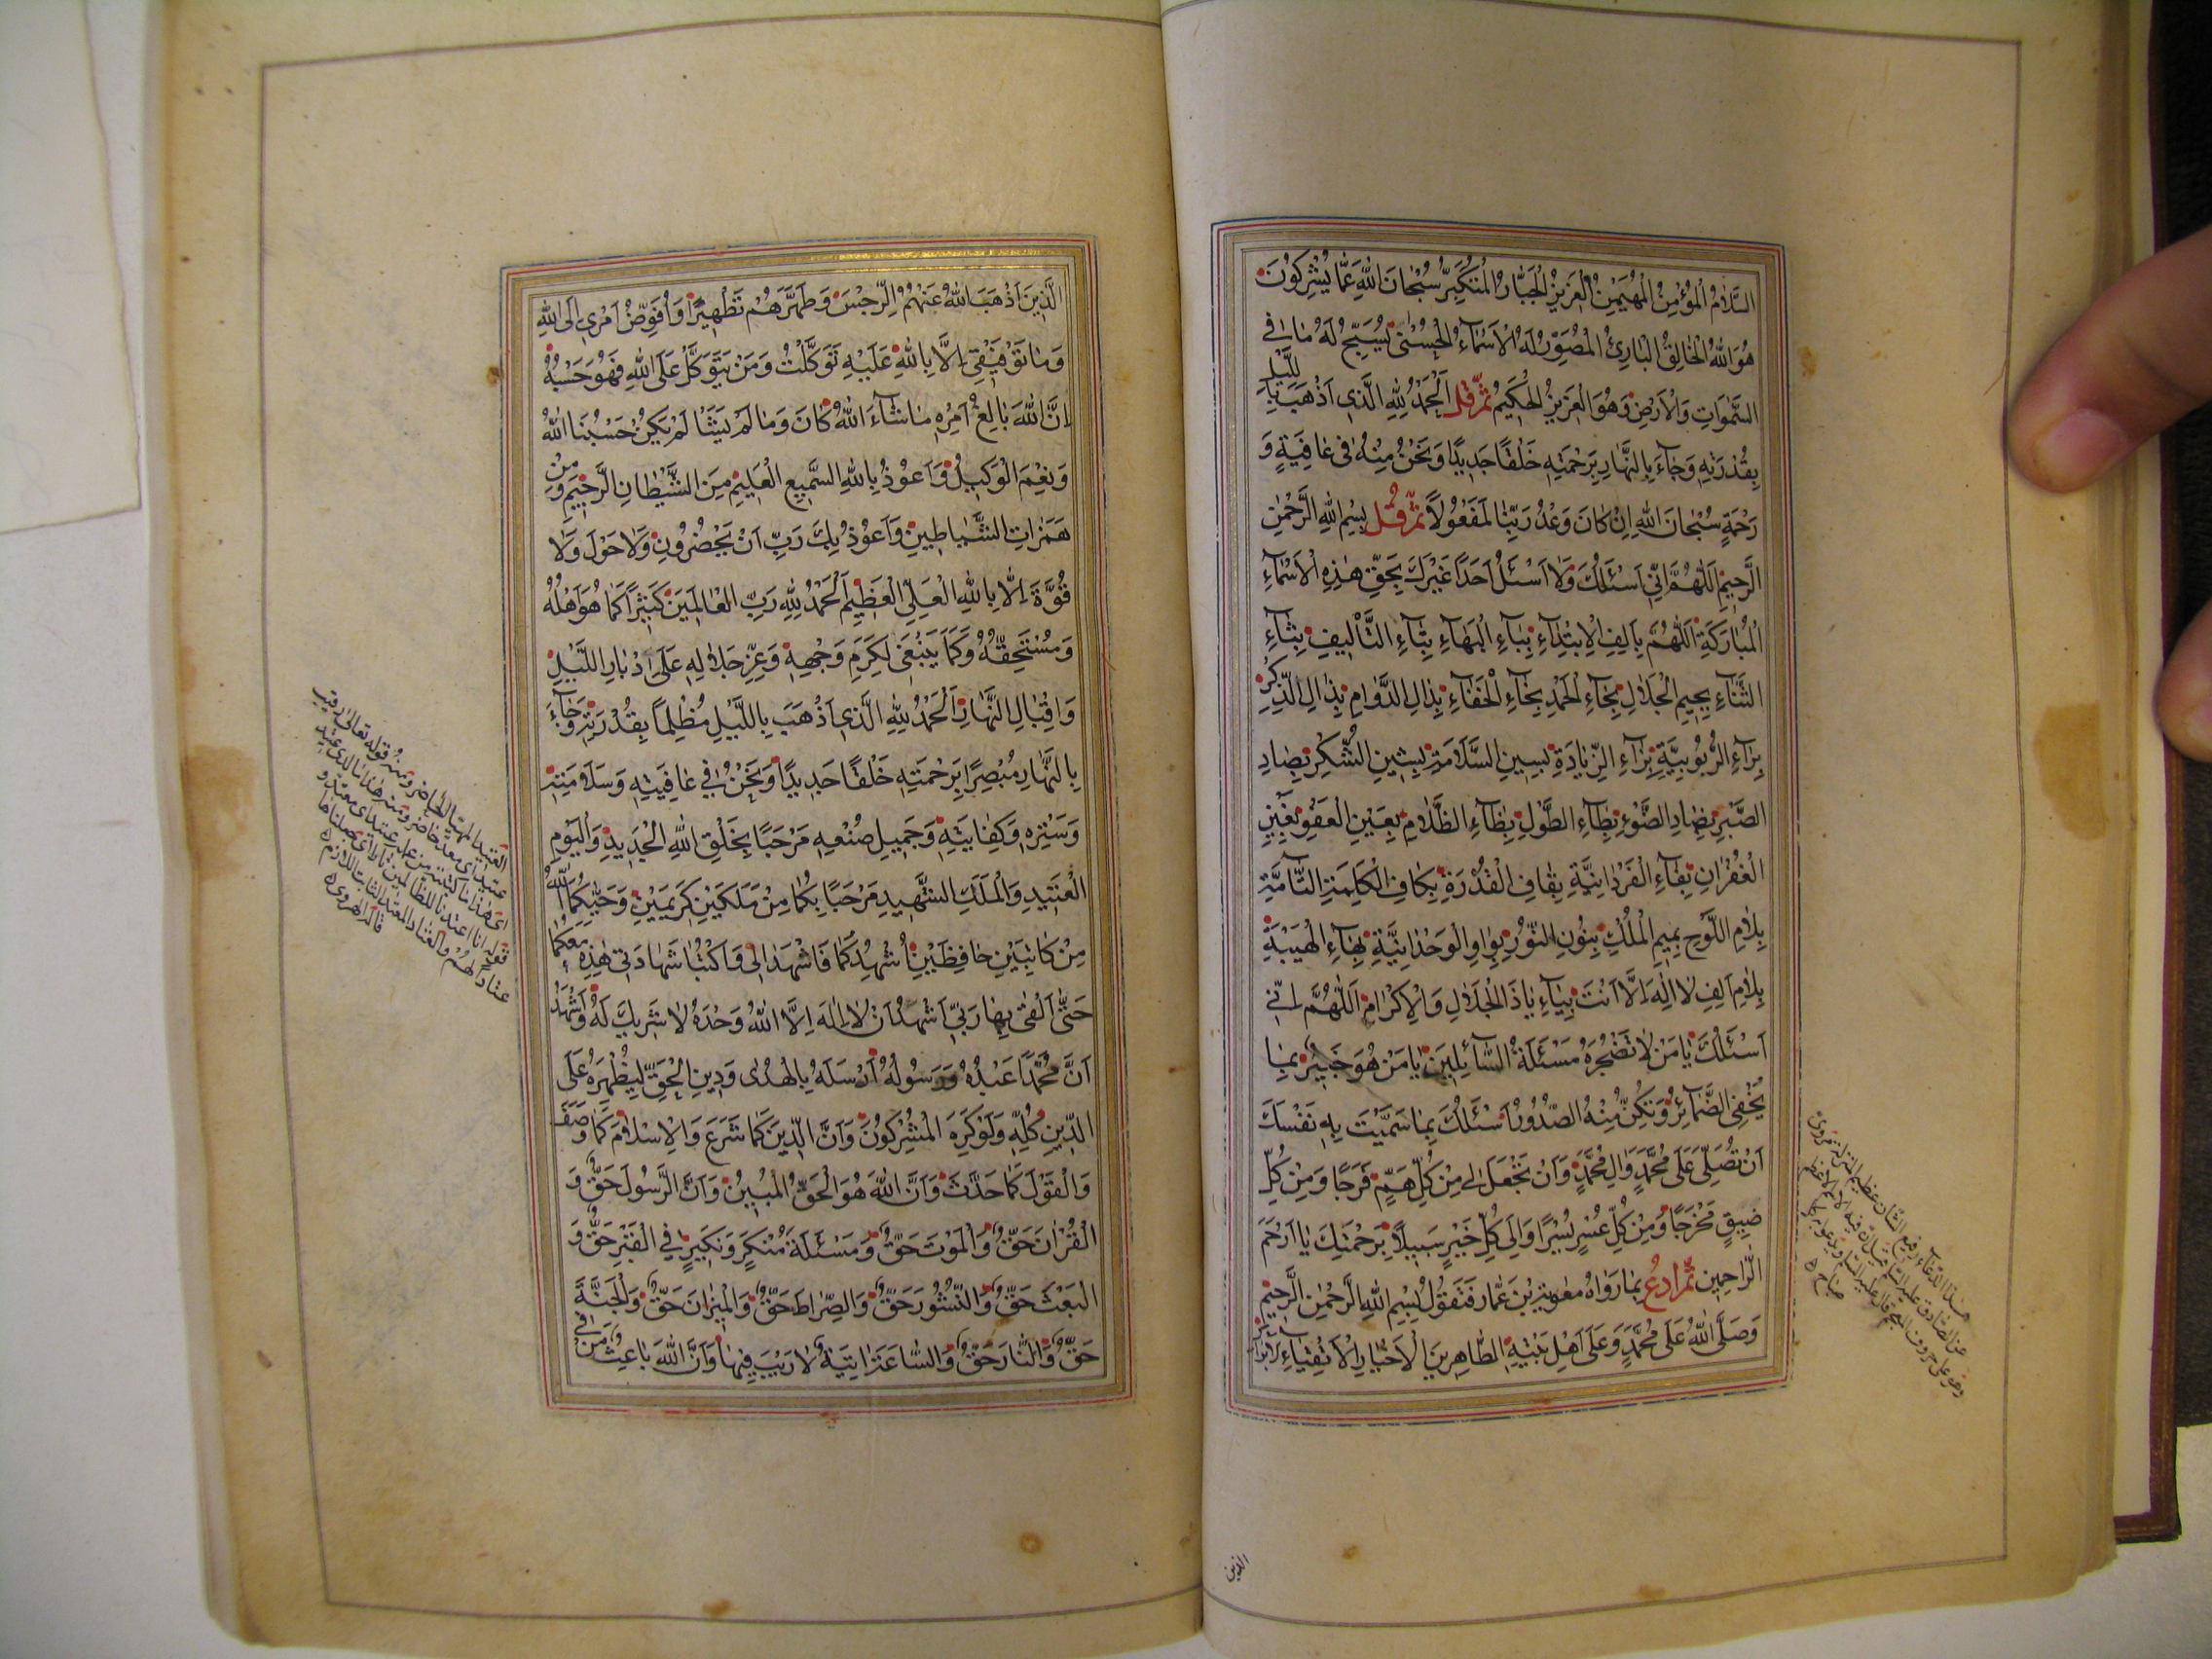 السَّلَامُ الْمُؤْمِنُ الْمُهَيْمِنُ الْعَزِيزُ الْجَبَّارُ الْمُتَكَبِّرُ سُبْحَانَ اللهِ عَمَّا يُشْرِكُونَ
هُوَ اللهُ الْخَالِقُ الْبَارِئُ الْمُصَوِّرُ لَهُ الْأَسْمَاءُ الْحُسْنَى يُسَبِّحُ لَهُ مَا فِي
السَّمَوَاتِ وَالْأَرْضِ وَهُوَ الْعَزِيزُ الْحَكِيمُ ثُمَّ قُلْ اَلْحَمْدُ لِلهِ الَّذِي اَذْهَبَ بِاللَّيْلِ
بِقُدْرَتِهِ وَجَاءَ بِالنَّهَارِ بِرَحْمَتِهِ خَلْقًا جَدِيدًا وَنَحْنُ مِنْهُ فِي عَافِيَةٍ وَ
رَحْمَةٍ سُبْحَانَ اللهِ اِنْ كَانَ وَعْدُ رَبِّنَا لَمَفْعُولًا ثُمَّ قُلْ بِسْمِ اللهِ الرَّحْمٰنِ
الرَّحِيمِ اَللّٰهُمَّ اِنِّي اَسْئَلُكَ وَلَا اَسْئَلُ اَحَدًا غَيْرَكَ بِحَقِّ هٰذِهِ الْاَسْمَاءِ
الْمُبَارَكَةِ اَللّٰهُمَّ بِاَلِفِ الْاِبْتِدَاءِ بِبَاءِ الْبَهَاءِ بِتَاءِ التَّأْلِيفِ بِثَاءِ
الثَّنَاءِ بِجِيمِ الْجَلَالِ بِحَاءِ الْحَمْدِ بِخَاءِ الْخَفَاءِ بِدَالِ الدَّوَامِ بِذَالِ الذِّكْرِ
بِرَاءِ الرُّبُوبِيَّةِ بِزَاءِ الزِّيَادَةِ بِسِينِ السَّلَامَةِ بِشِينِ الشُّكْرِ بِصَادِ
الصَّبْرِ بِضَادِ الضَّوْءِ بِطَاءِ الطَّوْلِ بِظَاءِ الظَّلَامِ بِعَيْنِ الْعَفْوِ بِغَيْنِ
الْغُفْرَانِ بِفَاءِ الْفَرْدَانِيَّةِ بِقَافِ الْقُدْرَةِ بِكَافِ الْكَلِمَةِ التَّامَّةِ
بِلَامِ اللَّوْحِ بِمِيمِ الْمُلْكِ بِنُونِ النُّورِ بِوَاوِ الْوَحْدَانِيَّةِ بِهَاءِ الْهَيْبَةِ
بِلَامِ اَلِفِ لَا اِلٰهَ اِلَّا اَنْتَ بِيَاءِ يَا ذَا الْجَلَالِ وَالْاِكْرَامِ اَللّٰهُمَّ اِنِّي
اَسْئَلُكَ يَا مَنْ لَا تُضْجِرُهُ مَسْئَلَةُ السَّائِلِينَ يَا مَنْ هُوَ خَبِيرٌ بِمَا
يُخْفِي الضَّمَائِرُ وَتُكِنُّ مِنْهُ الصُّدُورُ اَسْئَلُكَ بِمَا سَمَّيْتَ بِهِ نَفْسَكَ
اَنْ تُصَلِّيَ عَلَى مُحَمَّدٍ وَالِ مُحَمَّدٍ وَاَنْ تَجْعَلَ لِي مِنْ كُلِّ هَمٍّ فَرَجًا وَمِنْ كُلِّ
ضِيقٍ مَخْرَجًا وَمِنْ كُلِّ عُسْرٍ يُسْرًا وَاِلَى كُلِّ خَيْرٍ سَبِيلًا بِرَحْمَتِكَ يَا اَرْحَمَ
الرَّاحِمِينَ ثُمَّ ادْعُ بِمَا رَوَاهُ مُعٰوِيَةُ بْنُ عَمَّارٍ فَتَقُولُ بِسْمِ اللهِ الرَّحْمٰنِ الرَّحِيمِ
وَصَلَّى اللهُ عَلَى مُحَمَّدٍ وَعَلَى اَهْلِ بَيْتِهِ الطَّاهِرِينَ الْاَخْيَارِ الْاَتْقِيَاءِ الْاَبْرَارِ
هذا الدعاء رفيع الشأن عظيم المنزلة مروي
عن الصادق عليه السلام
الذين
الَّذِينَ اَذْهَبَ اللهُ عَنْهُمُ الرِّجْسَ وَطَهَّرَهُمْ تَطْهِيرًا وَاُفَوِّضُ اَمْرِي اِلَى اللهِ
وَمَا تَوْفِيقِي اِلَّا بِاللهِ عَلَيْهِ تَوَكَّلْتُ وَمَنْ يَتَوَكَّلْ عَلَى اللهِ فَهُوَ حَسْبُهُ
اِنَّ اللهَ بَالِغُ اَمْرِهِ مَا شَاءَ اللهُ كَانَ وَمَا لَمْ يَشَأْ لَمْ يَكُنْ حَسْبُنَا اللهُ
وَنِعْمَ الْوَكِيلُ وَاَعُوذُ بِاللهِ السَّمِيعِ الْعَلِيمِ مِنَ الشَّيْطَانِ الرَّجِيمِ وَمِنْ
هَمَزَاتِ الشَّيَاطِينِ وَاَعُوذُ بِكَ رَبِّ اَنْ يَحْضُرُونِ وَلَا حَوْلَ وَلَا
قُوَّةَ اِلَّا بِاللهِ الْعَلِيِّ الْعَظِيمِ اَلْحَمْدُ لِلهِ رَبِّ الْعَالَمِينَ كَثِيرًا كَمَا هُوَ اَهْلُهُ
وَمُسْتَحِقُّهُ وَكَمَا يَنْبَغِي لِكَرَمِ وَجْهِهِ وَعِزِّ جَلَالِهِ عَلَى اِدْبَارِ اللَّيْلِ
وَاِقْبَالِ النَّهَارِ اَلْحَمْدُ لِلهِ الَّذِي اَذْهَبَ بِاللَّيْلِ مُظْلِمًا بِقُدْرَتِهِ وَجَاءَ
بِالنَّهَارِ مُبْصِرًا بِرَحْمَتِهِ خَلْقًا جَدِيدًا وَنَحْنُ فِي عَافِيَتِهِ وَسَلَامَتِهِ
وَسِتْرِهِ وَكِفَايَتِهِ وَجَمِيلِ صُنْعِهِ مَرْحَبًا بِخَلْقِ اللهِ الْجَدِيدِ وَالْيَوْمِ
الْعَتِيدِ وَالْمَلَكِ الشَّهِيدِ مَرْحَبًا بِكُمَا مِنْ مَلَكَيْنِ كَرِيمَيْنِ وَحَيَّاكُمَا اللهُ
مِنْ كَاتِبَيْنِ حَافِظَيْنِ اُشْهِدُكُمَا فَاشْهَدَا لِي وَاكْتُبَا شَهَادَتِي هٰذِهِ مَعَكُمَا
حَتَّى اَلْقَى بِهَا رَبِّي اَشْهَدُ اَنْ لَا اِلٰهَ اِلَّا اللهُ وَحْدَهُ لَا شَرِيكَ لَهُ وَاَشْهَدُ
اَنَّ مُحَمَّدًا عَبْدُهُ وَرَسُولُهُ اَرْسَلَهُ بِالْهُدَى وَدِينِ الْحَقِّ لِيُظْهِرَهُ عَلَى
الدِّينِ كُلِّهِ وَلَوْ كَرِهَ الْمُشْرِكُونَ وَاَنَّ الدِّينَ كَمَا شَرَعَ وَالْاِسْلَامَ كَمَا وَصَفَ
وَالْقَوْلَ كَمَا حَدَّثَ وَاَنَّ اللهَ هُوَ الْحَقُّ الْمُبِينُ وَاَنَّ الرَّسُولَ حَقٌّ وَ
الْقُرْاٰنَ حَقٌّ وَالْمَوْتَ حَقٌّ وَمَسْئَلَةَ مُنْكَرٍ وَنَكِيرٍ فِي الْقَبْرِ حَقٌّ وَ
الْبَعْثَ حَقٌّ وَالنُّشُورَ حَقٌّ وَالصِّرَاطَ حَقٌّ وَالْمِيزَانَ حَقٌّ وَالْجَنَّةَ
حَقٌّ وَالنَّارَ حَقٌّ وَالسَّاعَةَ اٰتِيَةٌ لَا رَيْبَ فِيهَا وَاَنَّ اللهَ بَاعِثُ مَنْ فِي
العتيد المهيأ الحاضر ومنه قوله تعالى رقيب
عتيد اي معد حاضر ومنه هذا ما لدي عتيد
قاله الهروي